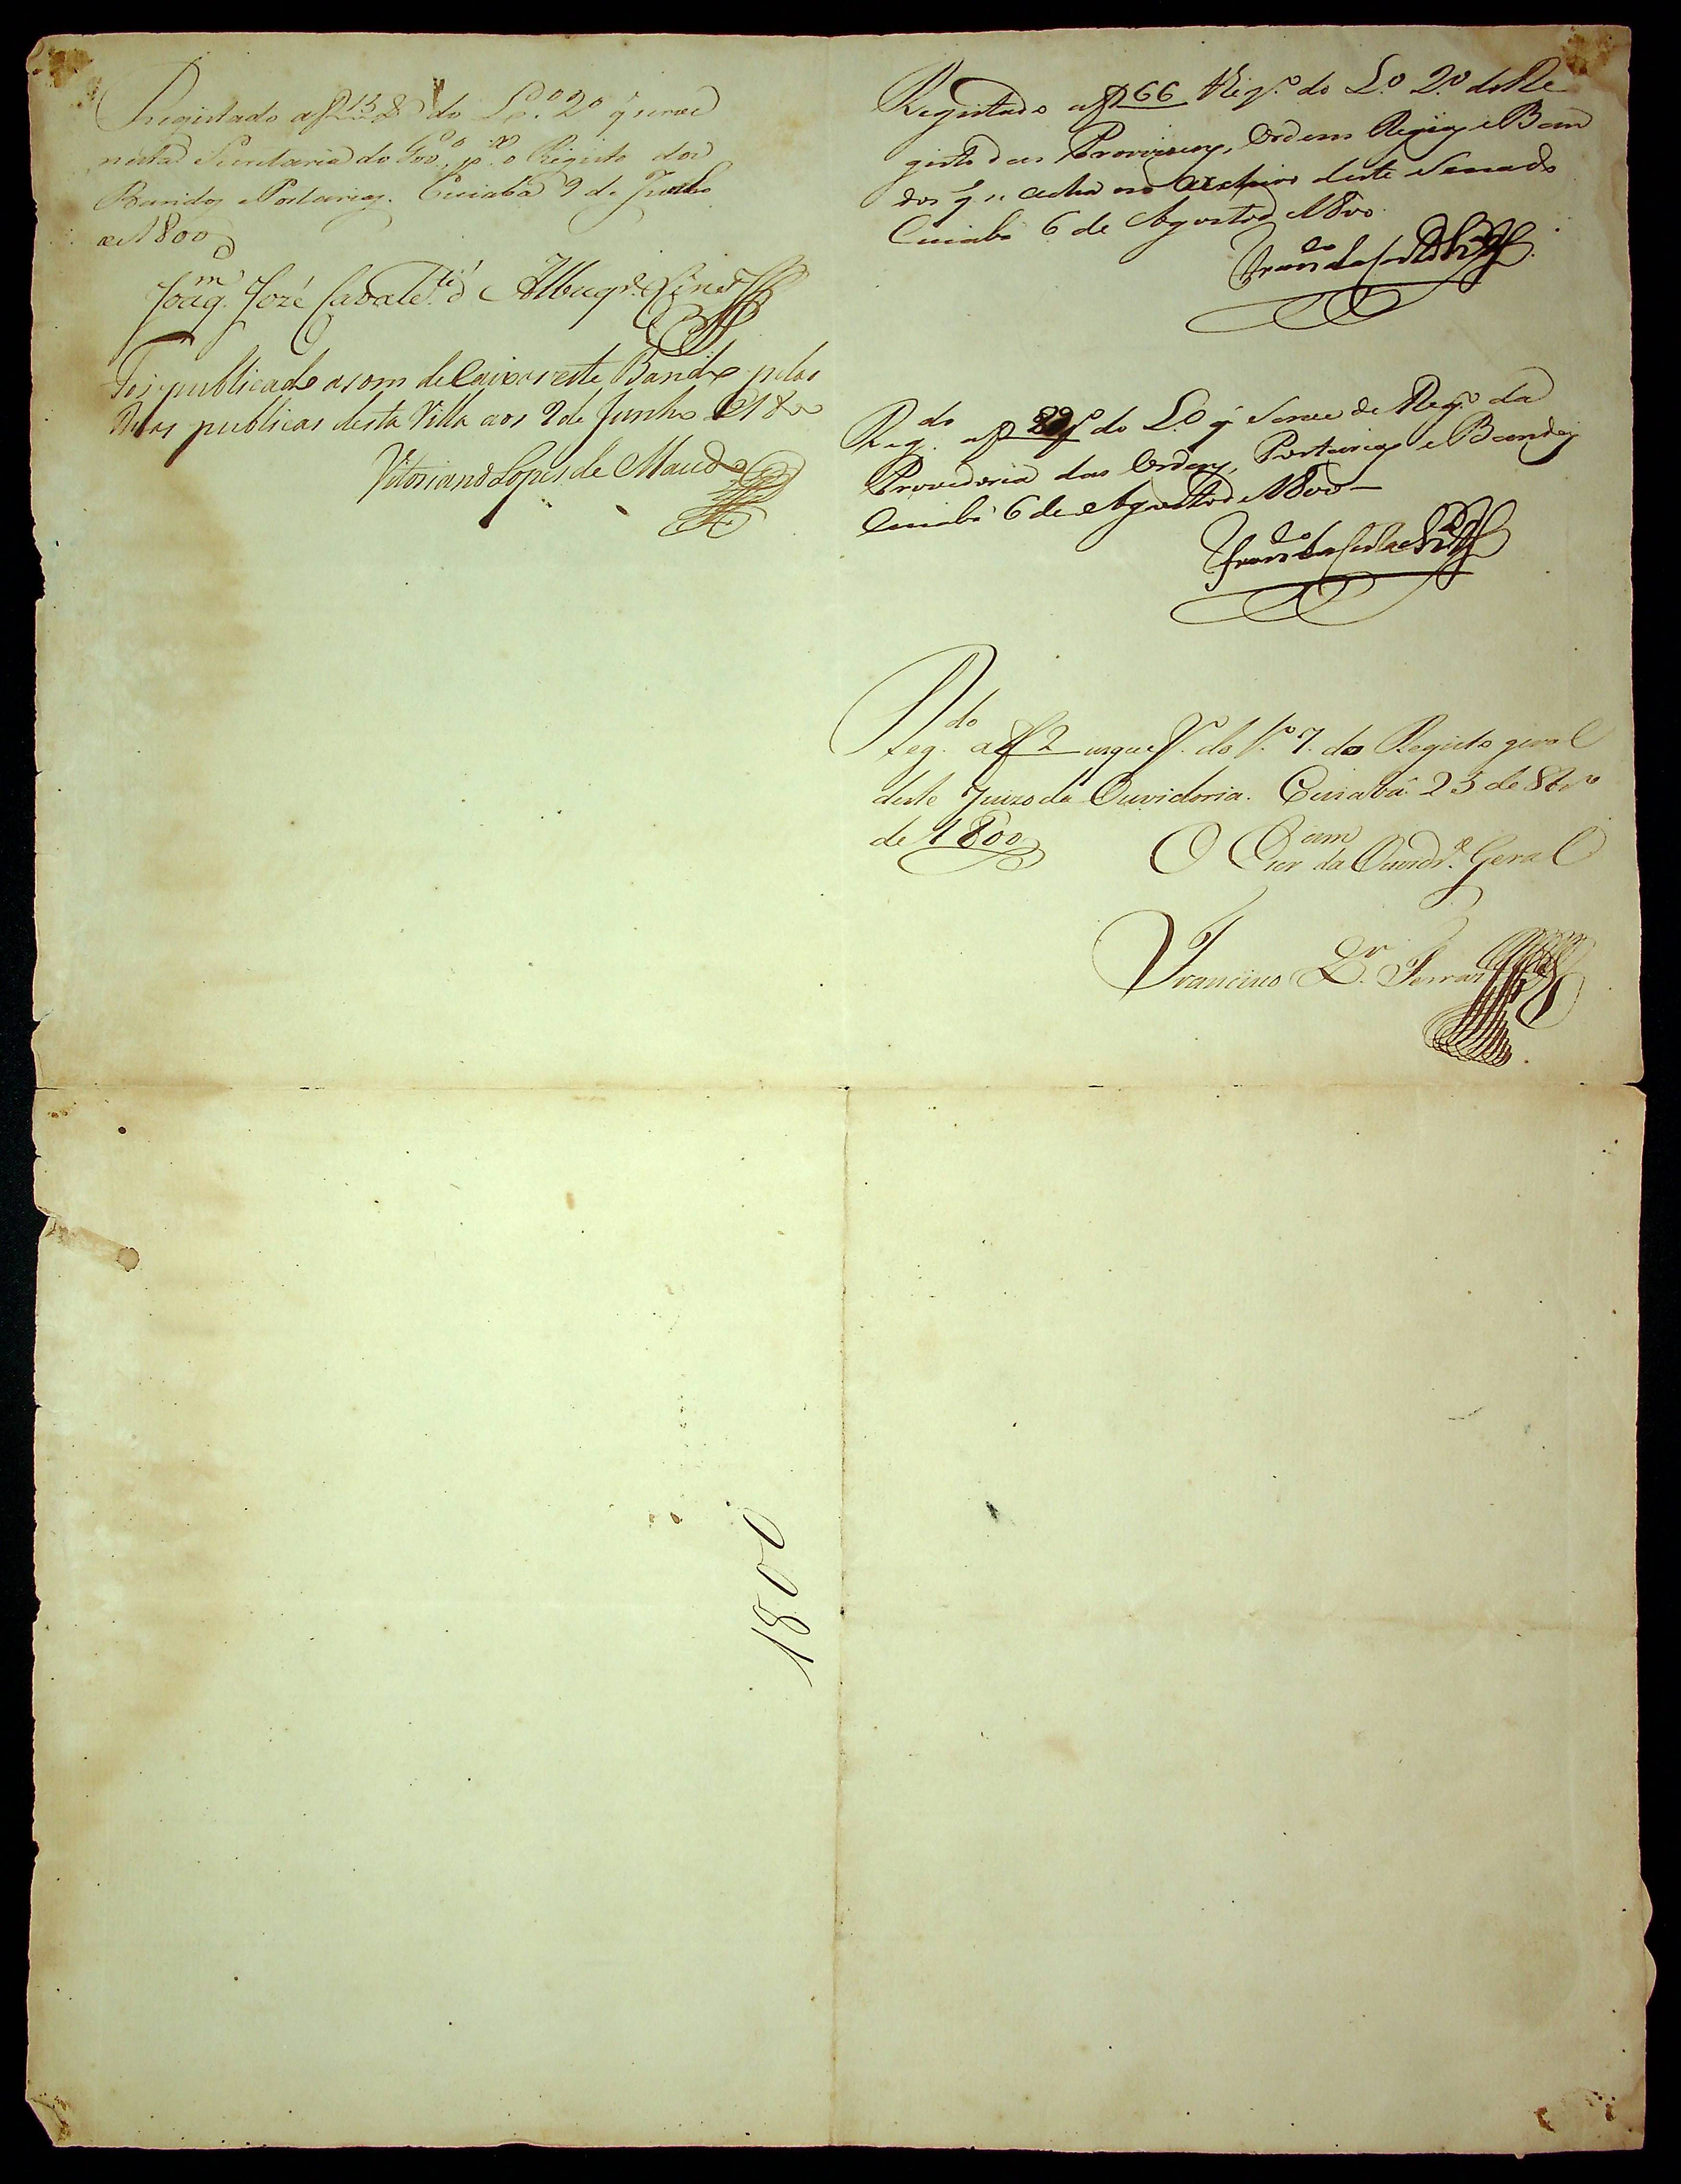 Registado a f 138 do L.º 2º q̃ serve
nesta Secretaria do Gov.º, p.ª o Registo dos
Bandos e Portarias. Cuiabá 9 de Junho
de 1800
Joaq.m José Cavalc.te d' Albuq.e Lins
Foi publicado a som de Caixas este Bando pelas
Ruas publicas desta Villa aos 9 de Junho de 1800
Vitoriano Lopes de Macedo
Registado a f 66 do L.º 2.º do Re
gisto das Provizoens, Ordens Regias e Ban
dos q̃ se acha no Archivo deste Senado
Cuiabá 6 de Agosto de 1800
Reg.do a f do L.º q̃ Serve de Reg.º da
Provedoria das Ordens, Portarias e Bandos
Cuiabá 6 de Agosto de 1800
Reg.do a f 2 usque V.º do L.º 7. do Registo geral
deste Juizo da Ouvidoria. Cuiabá 25 de 8br.º
de 1800
O Escr.am da Ouvid.ª Geral
Francisco Ferraz
1800